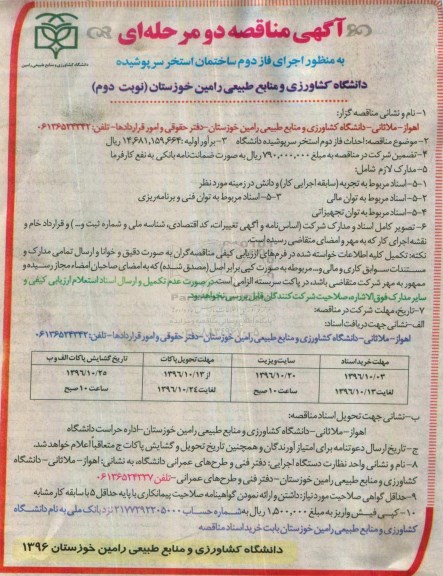 آگهی مناقصه دو مرحله‌ای
به منظور اجرای فاز دوم ساختمان استخر سرپوشیده
دانشگاه کشاورزی و منابع طبیعی رامین خوزستان (نوبت دوم)
دانشگاه کشاورزی و منابع طبیعی رامین
۱- نام و نشانی مناقصه گزار:
اهواز-ملاثانی-دانشگاه کشاورزی و منابع طبیعی رامین خوزستان-دفتر حقوقی و امور قراردادها-تلفن: ۰۶۱۳۶۵۲۴۳۴۲
۲- موضوع مناقصه: احداث فاز دوم استخر سرپوشیده دانشگاه ۳- برآورد اولیه: ۱۴,۶۸۱,۱۵۹,۶۶۴ ریال
۴- تضمین شرکت در مناقصه به مبلغ ۷۹۰,۰۰۰,۰۰۰ ریال به صورت ضمانت‌نامه بانکی به نفع کارفرما
۵- مدارک لازم شامل:
۵-۱- اسناد مربوط به تجربه (سابقه اجرایی کار) و دانش در زمینه مورد نظر
۵-۲- اسناد مربوط به توان مالی ۵-۳- اسناد مربوط به توان فنی و برنامه‌ریزی
۵-۴- اسناد مربوط به توان تجهیزاتی
۶- تصویر کامل اسناد و مدارک شرکت (اساس‌نامه و آگهی تغییرات، کد اقتصادی، شناسه ملی و شماره ثبت و...) و قرارداد خام و
نقشه اجرای کار که به مهر و امضای متقاضی رسیده
نکته: تکمیل کلیه اطلاعات خواسته شده در فرم‌های ارزیابی کیفی مناقصه‌گران به صورت دقیق و خوانا و ارسال تمامی مدارک و
مستندات سوابق کاری و مالی و... مربوطه به صورت کپی برابر اصل (مصدق شده) که به امضای صاحبان امضاء مجاز رسیده و
ممهور به مهر شرکت متقاضی باشد، در پاکت سربسته الزامی است در صورت عدم تکمیل و ارسال اسناد استعلام ارزیابی کیفی و
سایر مدارک فوق‌الاشاره صلاحیت شرکت کنندگان قابل بررسی نخواهد بود.
۷- تاریخ، مهلت شرکت در مناقصه:
الف- نشانی جهت دریافت اسناد:
اهواز-ملاثانی-دانشگاه کشاورزی و منابع طبیعی رامین خوزستان-دفتر حقوقی و امور قراردادها-تلفن: ۰۶۱۳۶۵۲۴۳۴۲
مهلت خرید اسناد سایت ویزیت مهلت تحویل پاکات تاریخ گشایش پاکات الف و ب
۱۳۹۶/۱۰/۰۳ ۱۳۹۶/۱۰/۲۰ از ۱۳۹۶/۱۰/۱۳ ۱۳۹۶/۱۰/۲۵
لغایت ۱۳۹۶/۱۰/۱۳ ساعت ۱۰ صبح لغایت ۱۳۹۶/۱۰/۲۴ ساعت ۱۰ صبح
ب- نشانی جهت تحویل اسناد مناقصه:
اهواز-ملاثانی-دانشگاه کشاورزی و منابع طبیعی رامین خوزستان-اداره حراست دانشگاه
ج- تاریخ ارسال دعوتنامه برای امتیاز آورندگان و همچنین تاریخ تحویل و گشایش پاکات ج متعاقباً اعلام خواهد شد.
۸- نام و نشانی واحد نظارت دستگاه اجرایی: دفتر فنی و طرح‌های عمرانی دانشگاه، به نشانی: اهواز-ملاثانی-دانشگاه
کشاورزی و منابع طبیعی رامین خوزستان-دفتر فنی و طرح‌های عمرانی-تلفن ۰۶۱۳۶۵۲۴۳۳۷
۹- حداقل گواهی صلاحیت مورد نیاز: داشتن و ارائه نمودن گواهینامه صلاحیت پیمانکاری با پایه حداقل ۵ با سابقه کار مشابه
۱۰- کپی فیش واریز به مبلغ ۱,۵۰۰,۰۰۰ ریال به شماره حساب ۲۱۷۷۲۹۲۲۰۵۰۰۰ نزد بانک ملی به نام دانشگاه
کشاورزی و منابع طبیعی رامین خوزستان بابت خرید اسناد مناقصه
دانشگاه کشاورزی و منابع طبیعی رامین خوزستان ۱۳۹۶